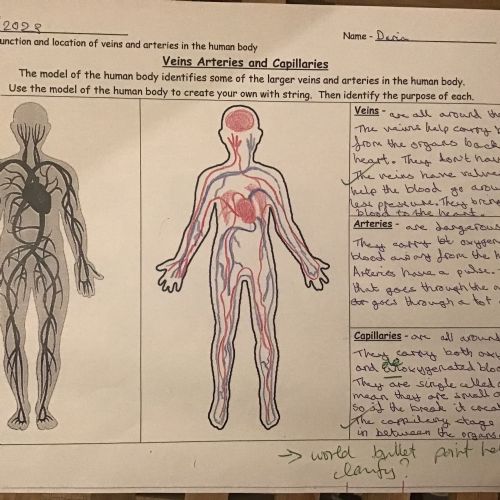 2028
Name - Daria
unction and location of veins and arteries in the human body
Veins Arteries and Capillaries
The model of the human body identifies some of the larger veins and arteries in the human body.
Use the model of the human body to create your own with string. Then identify the purpose of each.
Veins - are all around the
The veins help carry b
from the organs back
heart. They don't hav
The veins have valves
help the blood go aroun
less pressure. They bring
blood to the heart.
Arteries - are dangerous
They carry bl oxygen
blood away from the h
Arteries have a pulse.
that goes through the
or goes through a lot
Capillaries - are all around
They carry both oxy
and deoxygenated bloo
They are single celled
mean they are small
so if the break it
The capillary stage
in between the organs
→ would bullet point he
clarify?